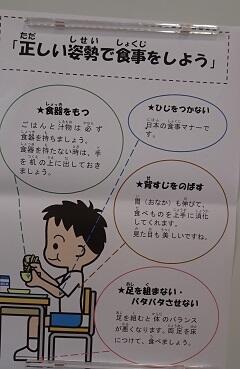 「正しい姿勢で食事をしよう」
★食器をもつ
ごはんと汁物は必ず
食器を持ちましょう。
食器を持たない時は、手
を机の上に出しておき
ましょう。
★ひじをつかない
日本の食事マナーで
す。
★背すじをのばす
胃(おなか)も伸びて、
食べものを上手に消化
してくれます。
見た目も美しいですね。
★足を組まない・
バタバタさせない
足を組むと体のバランス
が悪くなります。両足を床
につけて、食べましょう。